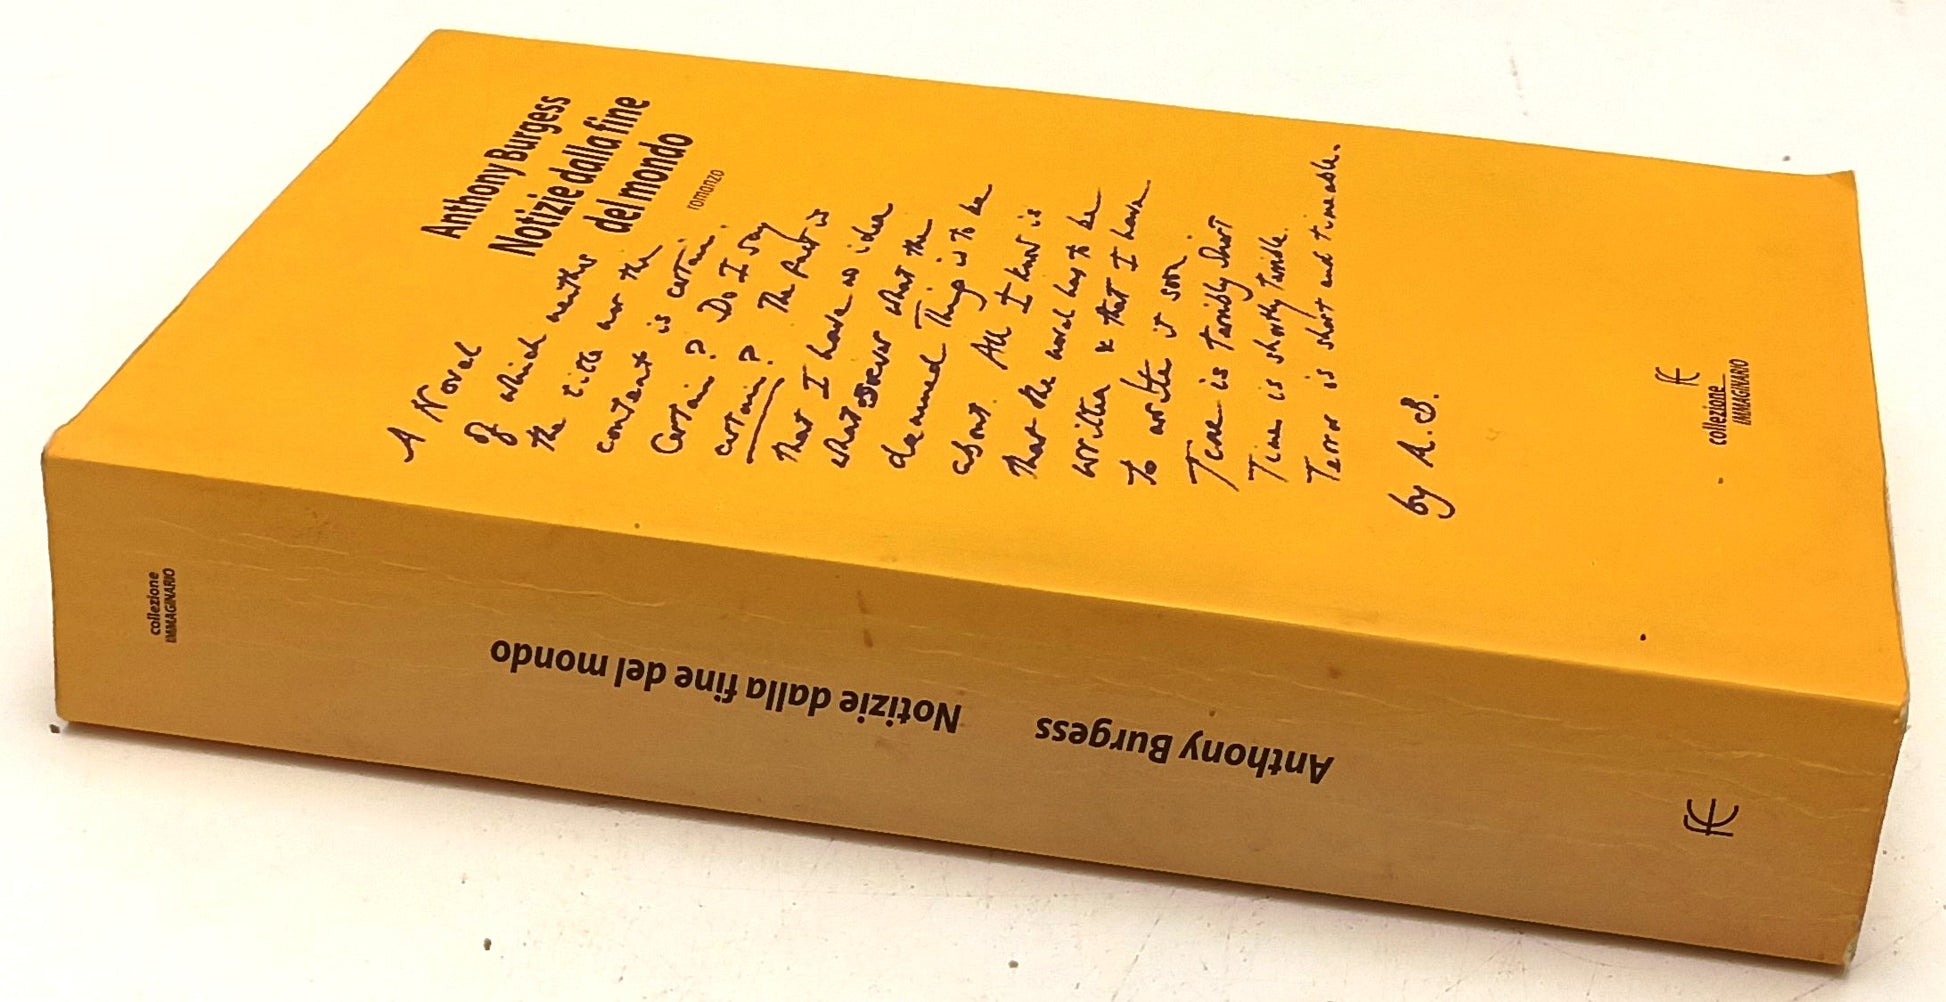 Anthony Burgess
Notizie dalla fine
del mondo
romanzo
A Novel
of which neither
the title nor the
content is certain.
Certain? Do I say
certain? The fact is
that I have no idea
whatsoever what the
damned Thing is to be
about. All I know is
that the novel has to be
written & that I have
to write it soon.
Time is terribly short
Time is shortly terrible.
Terror is short and timeable.
by A. B.
FE
collezione
IMMAGINARIO
collezione
IMMAGINARIO
Notizie dalla fine del mondo
Anthony Burgess
FE